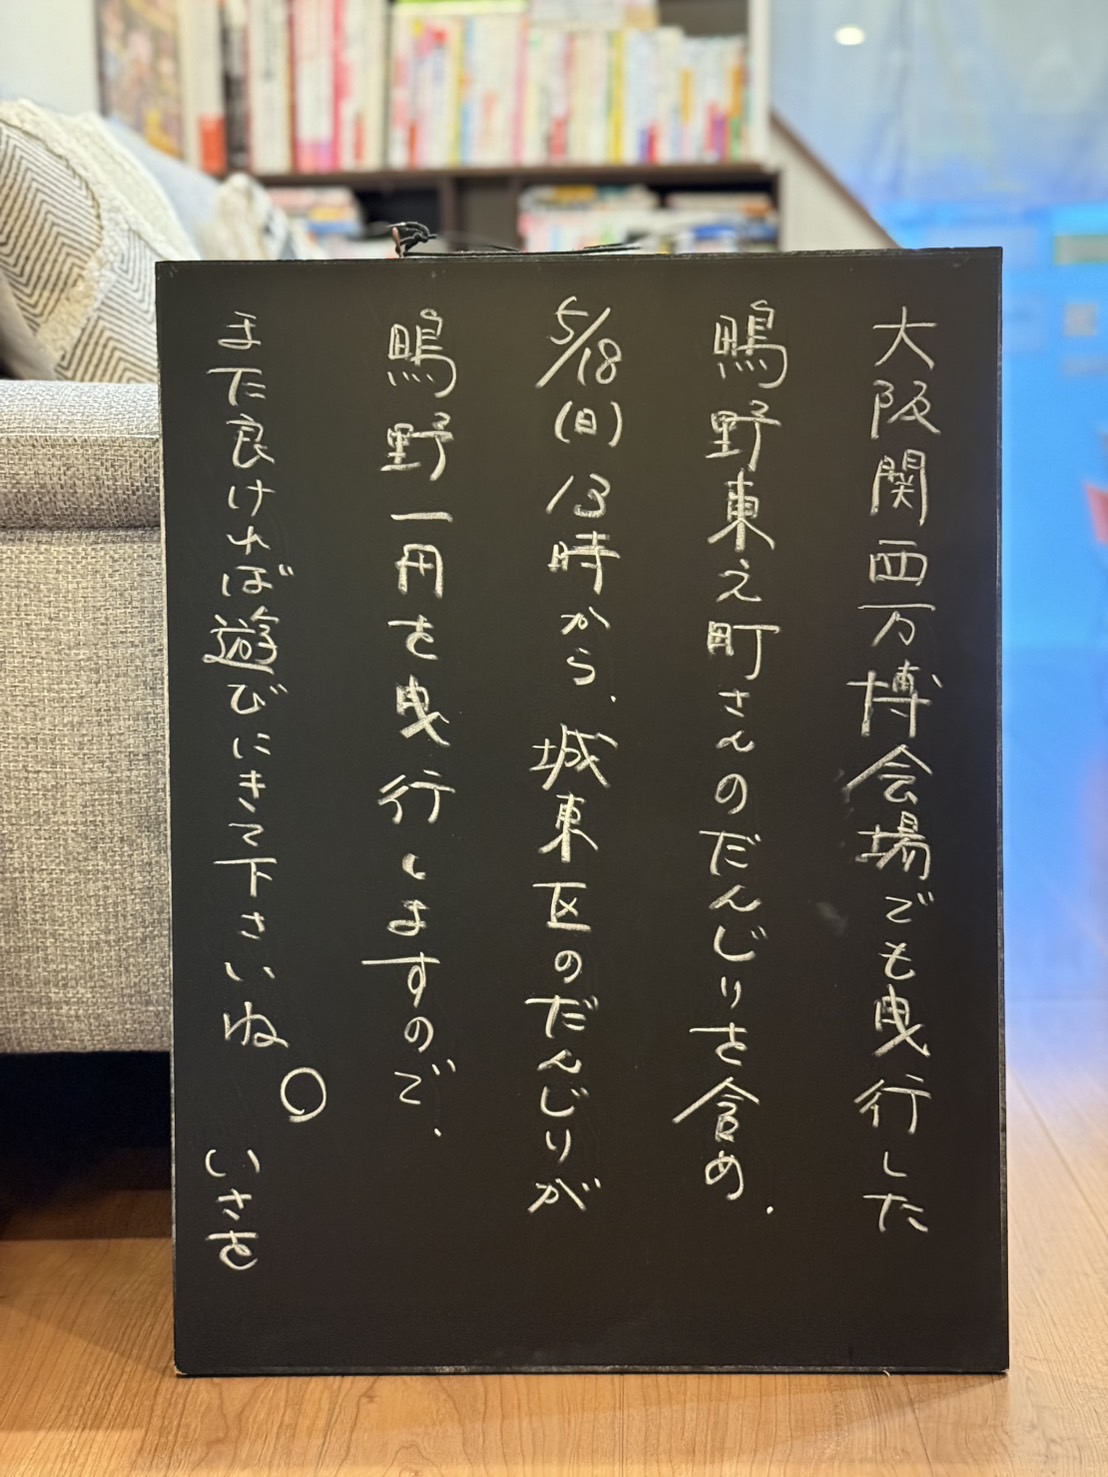 大阪関西万博会場でも曳行した
鴫野東之町さんのだんじりを含め、
5/18(日)13時から、城東区のだんじりが
鴫野一円を曳行しますので、
また良ければ遊びにきて下さいね。
いさを